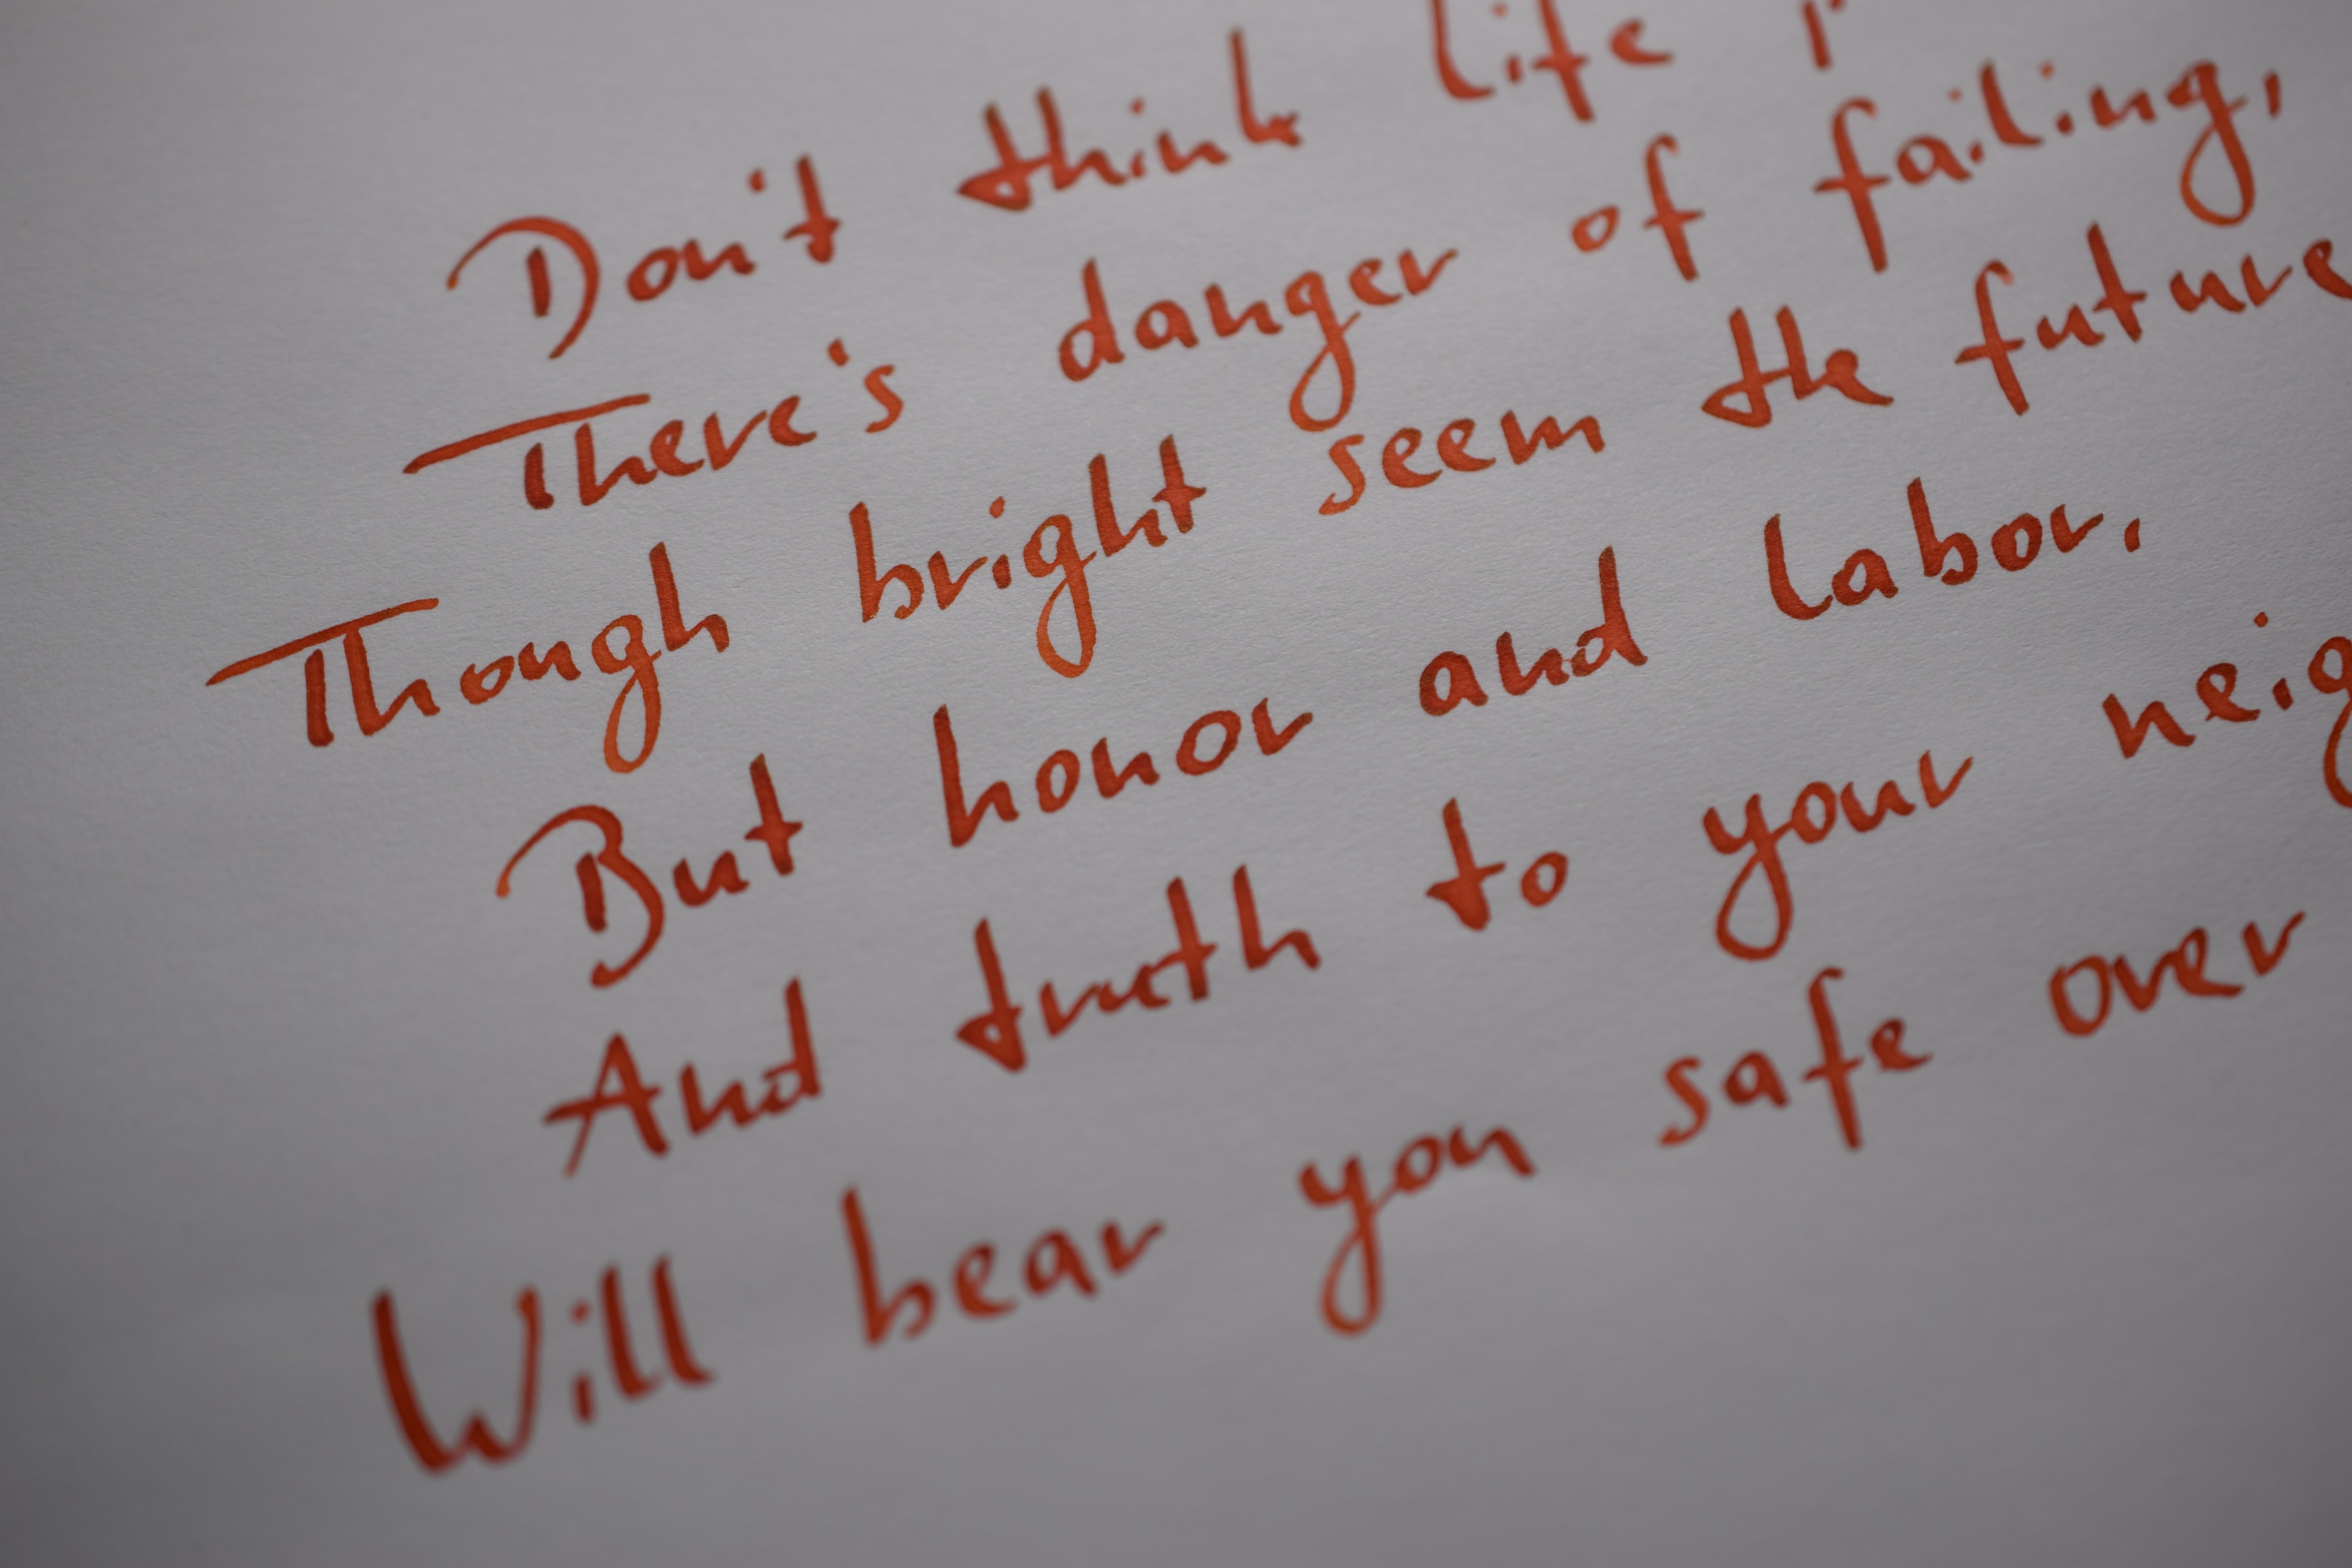 Don't think life
There's danger of failing,
Though bright seem the future
But honor and labor,
And truth to your
Will bear you safe over